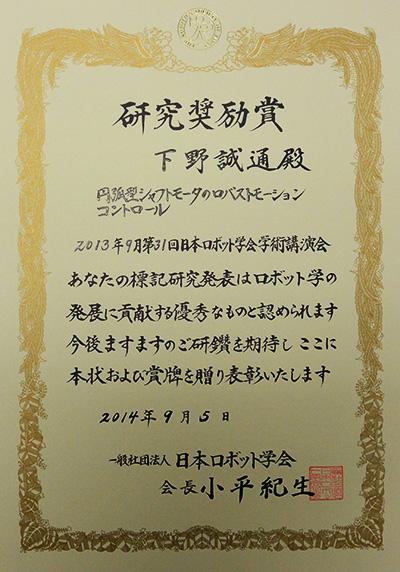 研究奨励賞
下野誠通殿
円弧型シャフトモータのロバストモーション
コントロール
2013年9月第31回日本ロボット学会学術講演会
あなたの標記研究発表はロボット学の
発展に貢献する優秀なものと認められます
今後ますますのご研鑽を期待し ここに
本状および賞牌を贈り表彰いたします
2014年9月5日
一般社団法人 日本ロボット学会
会長 小平紀生